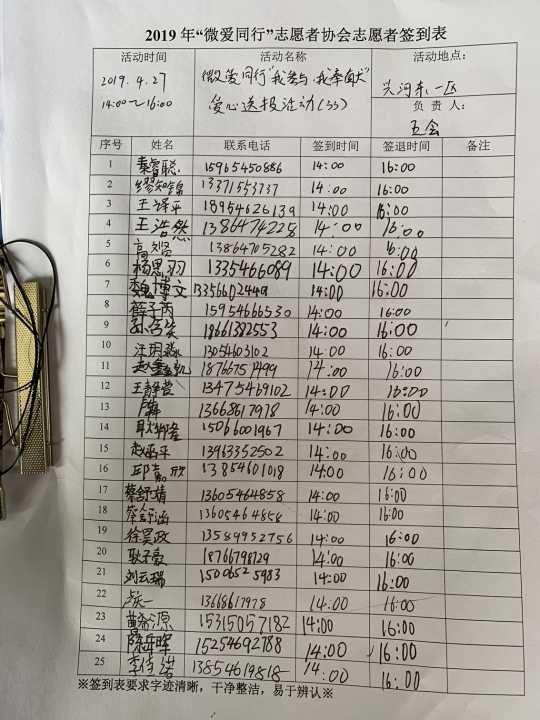 2019 年“微爱同行”志愿者协会志愿者签到表
活动时间 活动名称 活动地点：
2019.4.27 微爱同行“我参与·我奉献” 兴河东一区
14:00～16:00 爱心送报活动(33) 负 责 人：
五会
序号 姓名 联系电话 签到时间 签退时间 备注
1 秦睿聪 15965450886 14:00 16:00
2 缪知锦 13371553737 14:00 16:00
3 王译平 18954626139 14:00 16:00
4 王浩然 13864742258 14:00 16:00
5 13864705282 14:00 16:00
6 杨思羽 1335466089 14:00 16:00
7 魏博文 13356602449 14:00 16:00
8 薛子芮 15954666530 14:00 16:00
9 18661382553 14:00 16:00
10 汪玥淼 13054603102 14:00 16:00
11 赵鑫凯 18766751499 14:00 16:00
12 王静萱 13475469102 14:00 16:00
13 13668617978 14:00 16:00
14 15066001967 14:00 16:00
15 13963352502 14:00 16:00
16 邱嘉欣 13854601018 14:00 16:00
17 蔡舒婧 13605464858 14:00 16:00
18 蔡舒涵 13605464858 14:00 16:00
19 徐昊政 13589952756 14:00 16:00
20 耿子豪 18766798129 14:00 16:00
21 刘云瑞 15006525983 14:00 16:00
22 13668617978 14:00 16:00
23 黄源 15315057182 14:00 16:00
24 陈岳晖 15254692788 14:00 16:00
25 13854619818 14:00 16:00
※签到表要求字迹清晰，干净整洁，易于辨认※